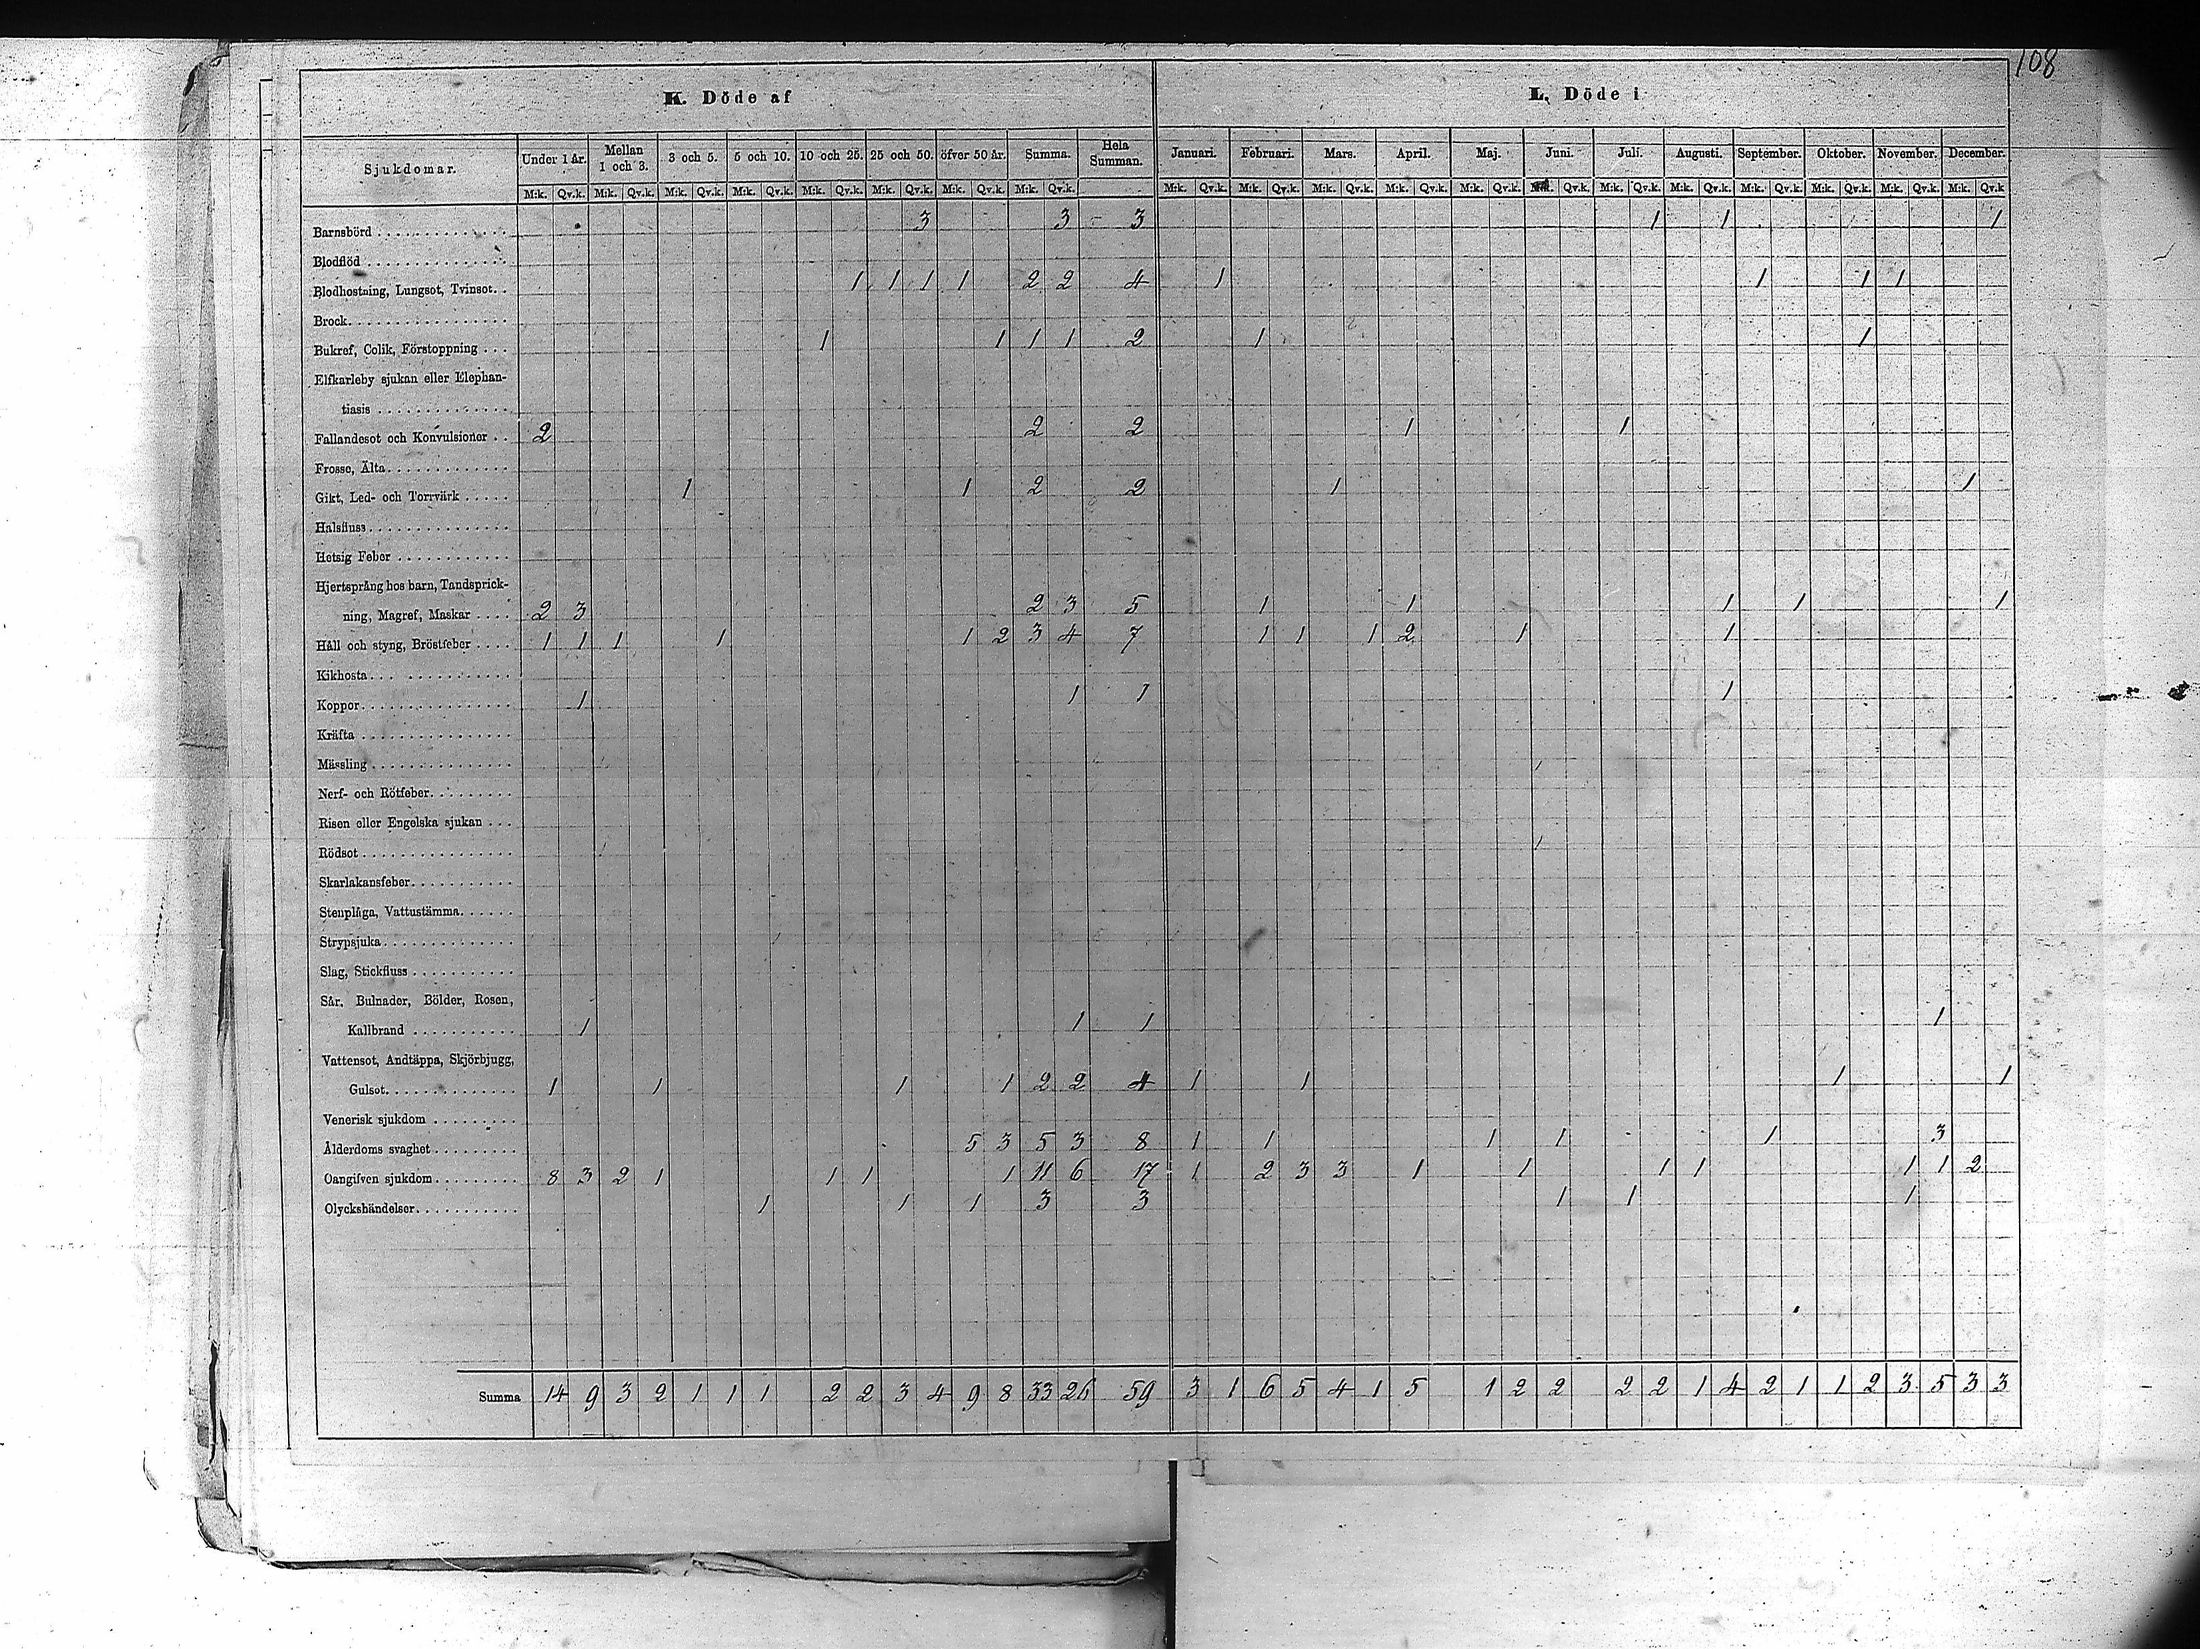 108
K. Döde af L. Döde i
Sjukdomar. Under 1 år. Mellan 1 och 3. 3 och 5. 5 och 10. 10 och 25. 25 och 50. öfver 50 år. Summa. Hela Summan. Januari. Februari. Mars. April. Maj. Juni. Juli. Augusti. September. Oktober. November. December.
M:k. Qv.k. M:k. Qv.k. M:k. Qv.k. M:k. Qv.k. M:k. Qv.k. M:k. Qv.k. M:k. Qv.k. M:k. Qv.k. M:k. Qv.k. M:k. Qv.k. M:k. Qv.k. M:k. Qv.k. M:k. Qv.k. Qv.k. M:k. Qv.k. M:k. Qv.k. M:k. Qv.k. M:k. Qv.k. M:k. Qv.k. M:k. Qv.k
Barnsbörd . . . . . . . . . . . . . . 3 3 - 3 1 1 1
Blodflöd . . . . . . . . . . . . . . .
Blodhostning, Lungsot, Tvinsot. . 1 1 1 1 2 2 4 1 1 1 1
Brock. . . . . . . . . . . . . . . . .
Bukref, Colik, Förstoppning . . . 1 1 1 1 2 1 1
Elfkarleby sjukan eller Elephan-
tiasis . . . . . . . . . . . . . .
Fallandesot och Konvulsioner . . 2 2 2 1 1
Frosse, Älta. . . . . . . . . . . . .
Gikt, Led- och Torrvärk . . . . . 1 1 2 2 1 1
Halsfluss. . . . . . . . . . . . . . .
Hetsig Feber . . . . . . . . . . . .
Hjertsprång hos barn, Tandsprick-
ning, Magref, Maskar . . . . 2 3 2 3 5 1 1 1 1 1
Håll och styng, Bröstfeber . . . . 1 1 1 1 1 2 3 4 7 1 1 1 2 1 1
Kikhosta. . . . . . . . . . . . . . .
Koppor. . . . . . . . . . . . . . . . 1 1 1 1
Kräfta . . . . . . . . . . . . . . . .
Mässling . . . . . . . . . . . . . . .
Nerf- och Rötfeber. . . . . . . . .
Risen eller Engelska sjukan . . .
Rödsot . . . . . . . . . . . . . . . .
Skarlakansfeber. . . . . . . . . . .
Stenplåga, Vattustämma. . . . . .
Strypsjuka . . . . . . . . . . . . . .
Slag, Stickfluss . . . . . . . . . . .
Sår, Bulnader, Bölder, Rosen,
Kallbrand . . . . . . . . . . . 1 1 1 1
Vattensot, Andtäppa, Skjörbjugg,
Gulsot. . . . . . . . . . . . . . 1 1 1 1 2 2 4 1 1 1 1
Venerisk sjukdom . . . . . . . . .
Ålderdoms svaghet . . . . . . . . . 5 3 5 3 8 1 1 1 1 1 3
Oangifven sjukdom . . . . . . . . . 8 3 2 1 1 1 1 11 6 17 1 2 3 3 1 1 1 1 1 1 2
Olyckshändelser. . . . . . . . . . . 1 1 1 3 3 1 1 1
Summa 14 9 3 2 1 1 1 2 2 3 4 9 8 33 26 59 3 1 6 5 4 1 5 1 2 2 2 2 1 4 2 1 1 2 3 5 3 3